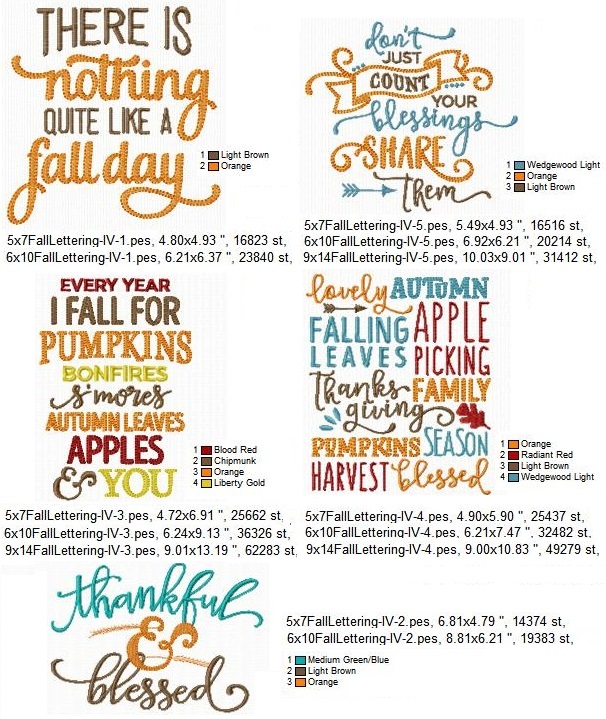 THERE IS
nothing
QUITE LIKE A
fall day
1 Light Brown
2 Orange
5x7FallLettering-IV-1.pes, 4.80x4.93 ", 16823 st,
6x10FallLettering-IV-1.pes, 6.21x6.37 ", 23840 st,
don't
JUST
COUNT
YOUR
blessings
SHARE
them
1 Wedgewood Light
2 Orange
3 Light Brown
5x7FallLettering-IV-5.pes, 5.49x4.93 ", 16516 st,
6x10FallLettering-IV-5.pes, 6.92x6.21 ", 20214 st,
9x14FallLettering-IV-5.pes, 10.03x9.01 ", 31412 st,
EVERY YEAR
I FALL FOR
PUMPKINS
BONFIRES
s'mores
AUTUMN LEAVES
APPLES
& YOU
1 Blood Red
2 Chipmunk
3 Orange
4 Liberty Gold
5x7FallLettering-IV-3.pes, 4.72x6.91 ", 25662 st,
6x10FallLettering-IV-3.pes, 6.24x9.13 ", 36326 st,
9x14FallLettering-IV-3.pes, 9.01x13.19 ", 62283 st,
lovely AUTUMN
FALLING APPLE
LEAVES PICKING
Thanks FAMILY
giving
PUMPKINS SEASON
HARVEST blessed
1 Orange
2 Radiant Red
3 Light Brown
4 Wedgewood Light
5x7FallLettering-IV-4.pes, 4.90x5.90 ", 25437 st,
6x10FallLettering-IV-4.pes, 6.21x7.47 ", 32482 st,
9x14FallLettering-IV-4.pes, 9.00x10.83 ", 49279 st,
thankful
&
blessed
5x7FallLettering-IV-2.pes, 6.81x4.79 ", 14374 st,
6x10FallLettering-IV-2.pes, 8.81x6.21 ", 19383 st,
1 Medium Green/Blue
2 Light Brown
3 Orange